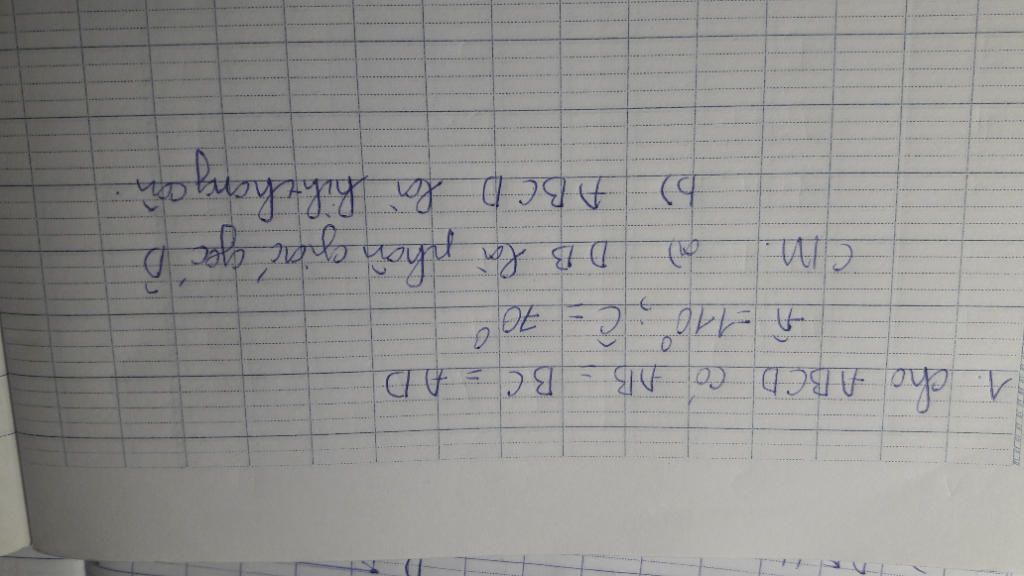 1. Cho ABCD có AB = BC = AD
Â = 110°; Ĉ = 70°
CM. a) DB là phân giác góc D̂
b) ABCD là hình thang cân.